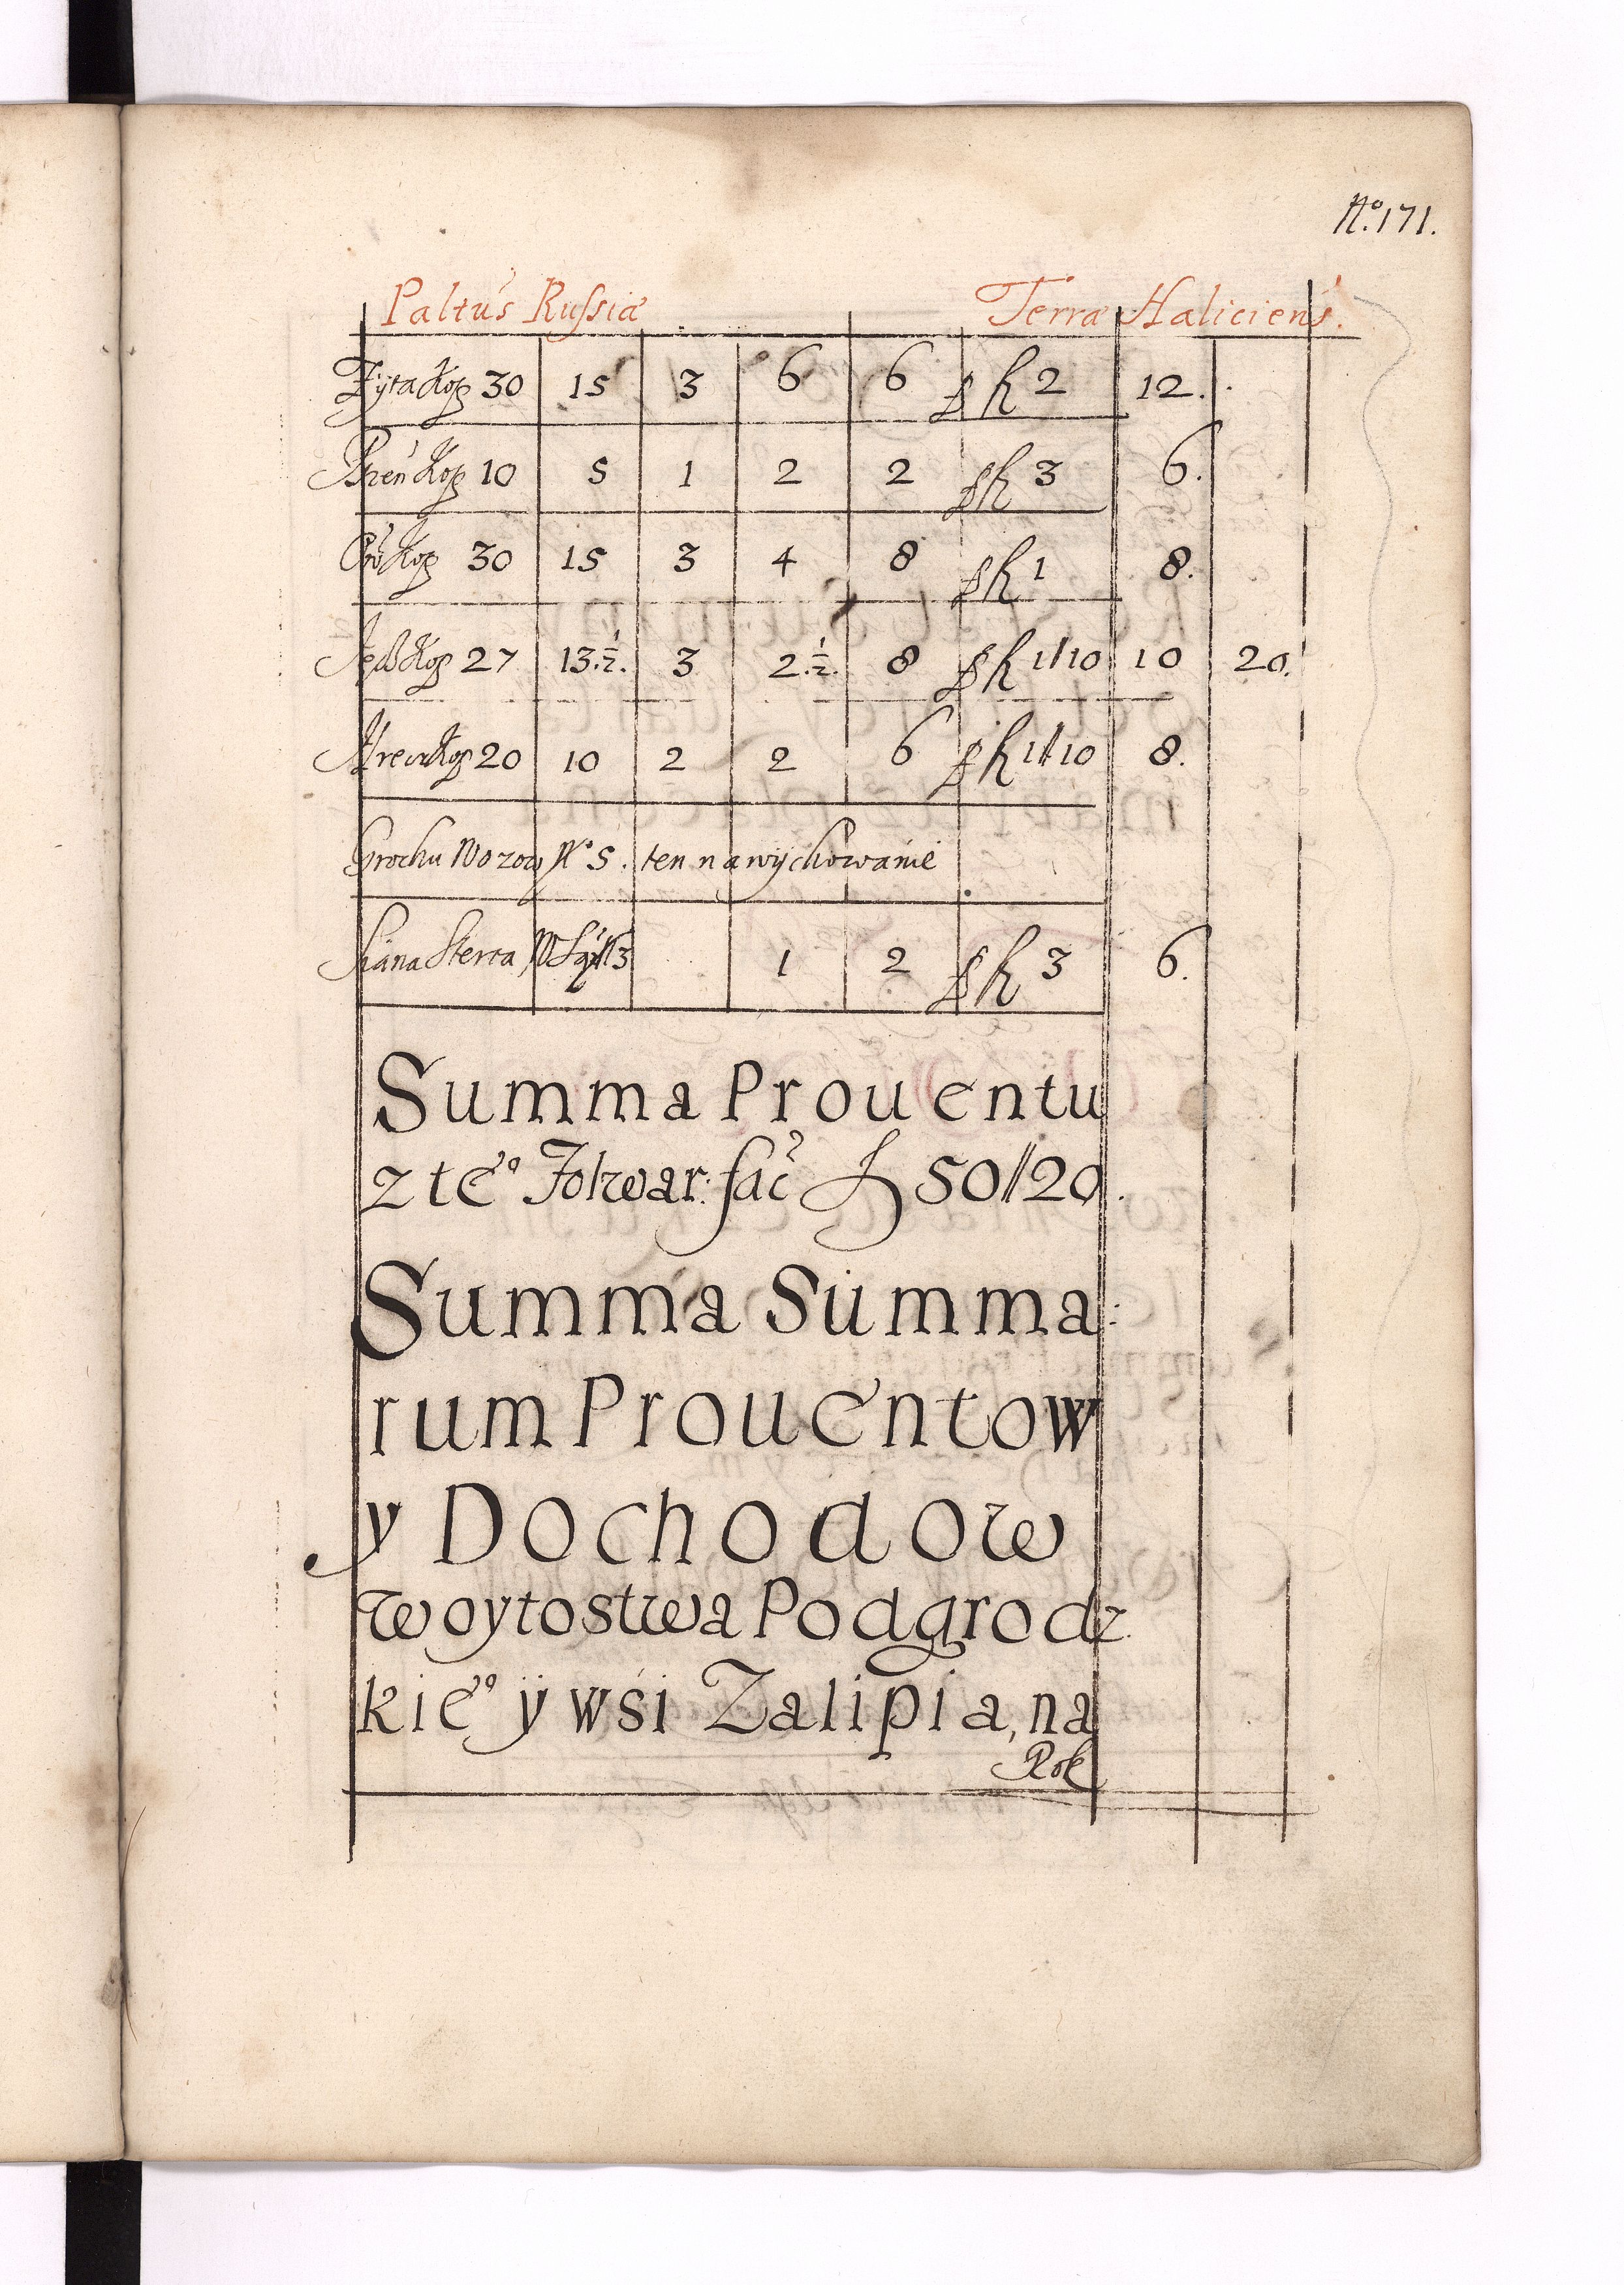 No. 171.
Paltus Russiæ Terræ Haliciens.
Zyta Kop 30 15 3 6 6 2 12.
Pszen Kop 10 5 1 2 2 3 6.
Kop 30 15 3 4 8 1 8.
Kop 27 13.½. 3 2.½. 8 1//10 10 20.
Kop 20 10 2 2 6 1//10 8.
Grochu Wozow No 5. ten na wychowanie
Siana Sterta 1 2 3 6.
Summa Prouentu
z teo Folwar: fac 50//20.
Summa Summa:
rum Prouentow
y Dochodow
woytostwa Podgrodz
kieo ÿ wsi Zalipia, na
Rok